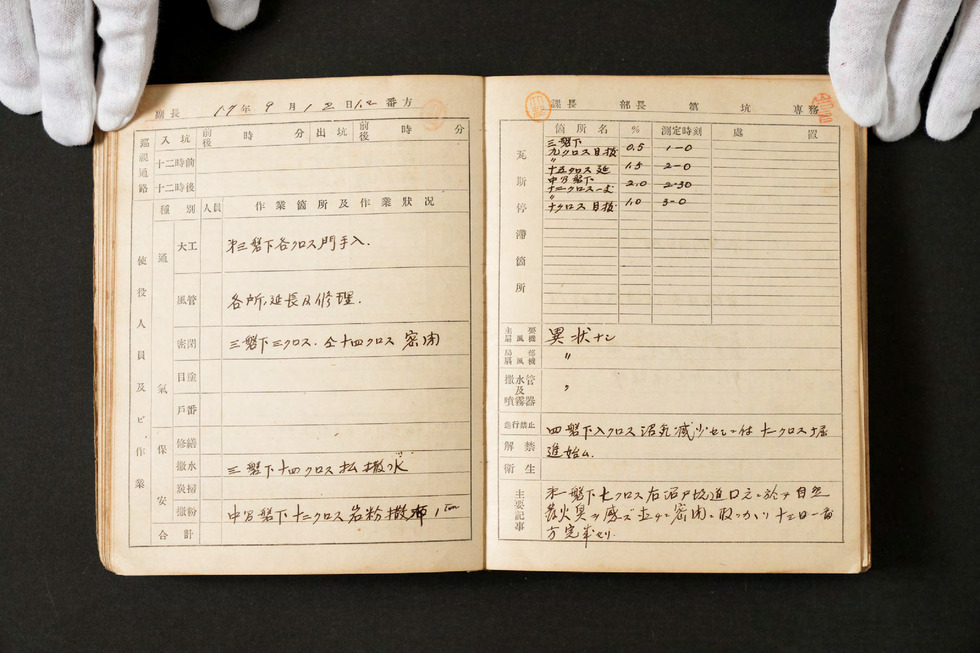 副長 17年9月12日1.2番方
巡視通路 入坑 前後 時 分 出坑 前後 時 分
十二時前
十二時後
使役人員及ビ作業
種別 人員 作業箇所及作業状況
通氣
大工 第三盤下各クロス門手入.
風管 各所延長及修理.
密閉 三盤下三クロス.仝十四クロス 密閉
目塗
戸番
保安
修繕
撒水 三盤下十四クロス払撒水
炭掃
撒粉 中写盤下十二クロス岩粉撒布 1ton
合計
課長 部長 第 坑 専務
瓦斯停滞箇所
箇所名 % 測定時刻 処置
三盤下
九クロス目抜 0.5 1-0
〃
十五クロス延 1.5 2-0
中写盤下
十二クロス 2.0 2-30
〃
十クロス目抜 1.0 3-0
主要扇風機 異状ナシ
局部扇風機 〃
撒水管及噴霧器 〃
進行禁止 四盤下入クロス沼気減少セシニ付十二クロス掘
解禁 進始ム.
衛生
主要記事
第一盤下七クロス右沼戸坑道口元ニ於テ自然
発火臭ヲ感ズ 密閉ニ取カカリ十三日一番
方完半セリ.